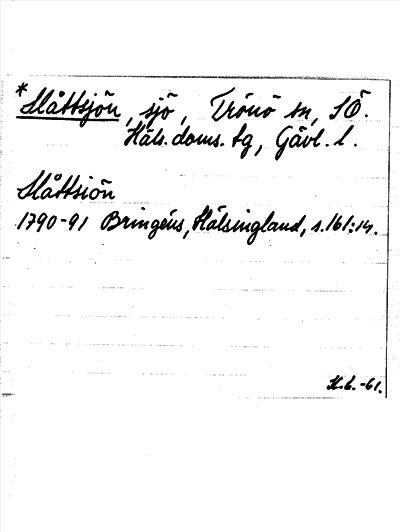 *Slåttsjön, sjö, Trönö sn, SÖ.
Häls. doms. tg, Gävl. l.
Slåttsiön
1790-91 Bringéus, Hälsingland, s. 161:14.
H.b. -61.